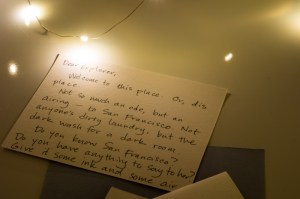 Dear Explorer,
Welcome to this place. Or, dis
place.
Not so much an ode, but an
airing — to San Francisco. Not
anyone's dirty laundry, but the
dark wash for a dark room.
Do you know San Francisco?
Do you have anything to say to her?
Give it some ink and some air.